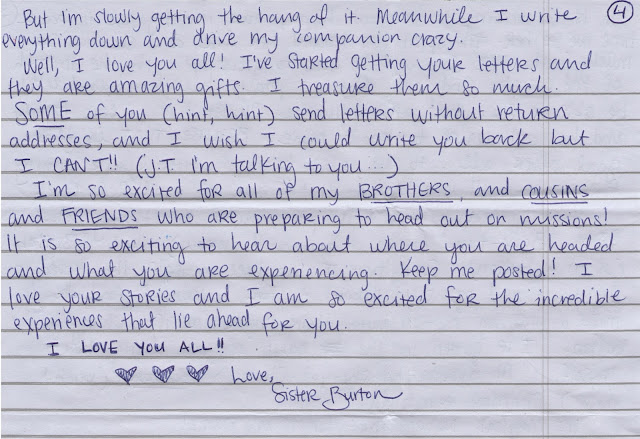 But I'm slowly getting the hang of it. Meanwhile I write (4)
everything down and drive my companion crazy.
Well, I love you all! I've started getting your letters and
they are amazing gifts. I treasure them so much.
SOME of you (hint, hint) send letters without return
addresses, and I wish I could write you back but
I CAN'T!! (J.T. I'm talking to you...)
I'm so excited for all of my BROTHERS, and COUSINS
and FRIENDS who are preparing to head out on missions!
It is so exciting to hear about where you are headed
and what you are experiencing. Keep me posted! I
love your stories and I am so excited for the incredible
experiences that lie ahead for you.
I LOVE YOU ALL!!
Love,
Sister Burton